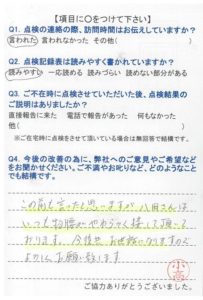 【項目に○をつけて下さい】
Q1. 点検の連絡の際、訪問時間はお伝えしていますか？
言われた　言われなかった　その他(　　　　)
Q2. 点検記録表は読みやすく書かれていますか？
読みやすい　一応読める　読みづらい　読めない部分がある
Q3. ご不在時に点検させていただいた後、点検結果の
ご説明はありましたか？
直接報告に来た　電話で報告があった　何もなかった
他(　　　　)
※ご在宅時に点検をさせて頂いている場合は無回答で結構です。
Q4. 今後の改善の為に、弊社へのご意見やご希望など
をお聞かせください。ご不満やお叱りなど、どのようなこと
でも結構です。
この前も言ったと思いますが 八田さんは
いつも物腰がやわらかく接して頂いて
おります。今後共、お世話になりますので
よろしくお願い致します
ご協力ありがとうございました。